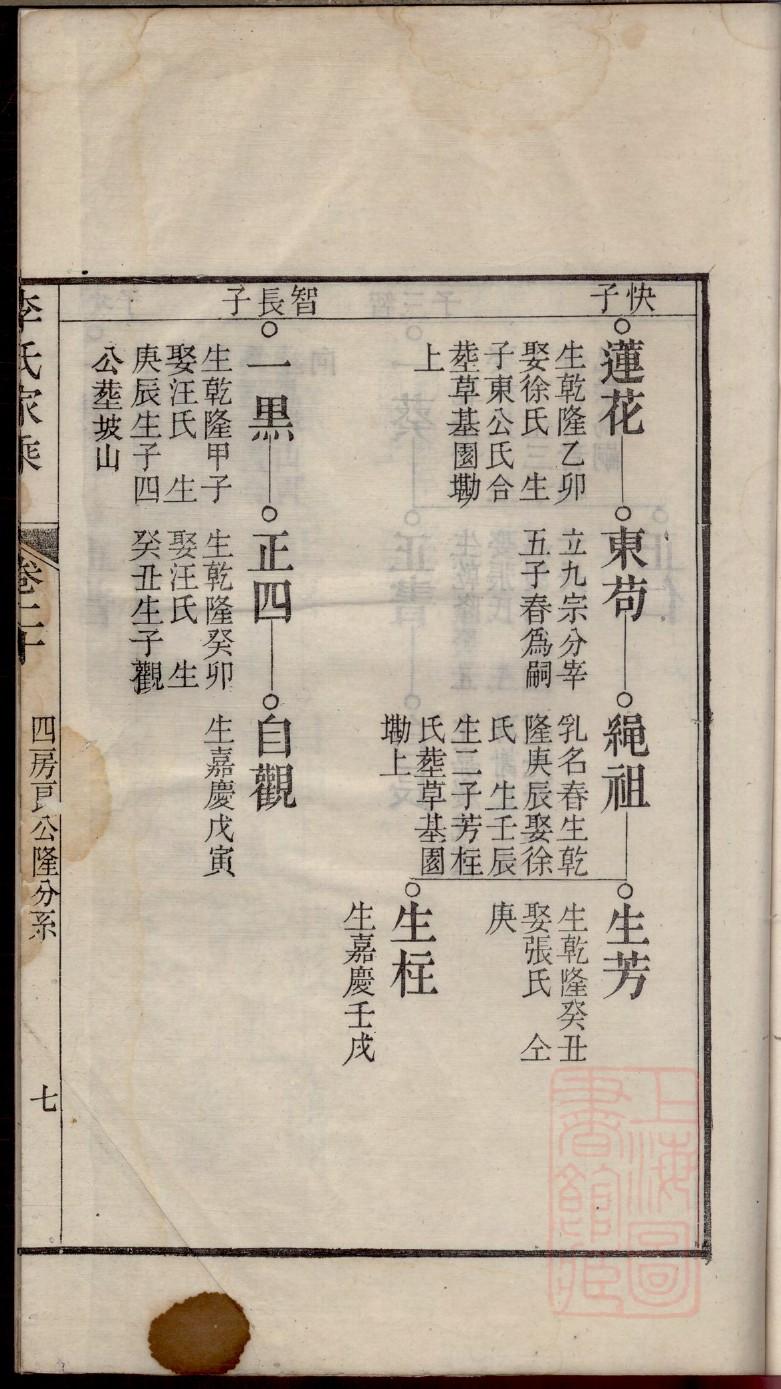 快子
蓮花
生乾隆乙卯
娶徐氏三生
子東公氏合
塟草基園墈
上
東苟
立九宗分宰
五子春為嗣
繩祖
乳名春生乾
隆庚辰娶徐
氏 生壬辰
生二子芳柱
氏塟草基園
墈上
生芳
生乾隆癸丑
娶張氏 仝
庚
生柱
生嘉慶壬戌
智長子
一黑
生乾隆甲子
娶汪氏 生
庚辰生子四
公塟坡山
正四
生乾隆癸卯
娶汪氏 生
癸丑生子觀
自觀
生嘉慶戊寅
李氏家乘
卷二十
四房公隆分系
七
上海圖書館藏